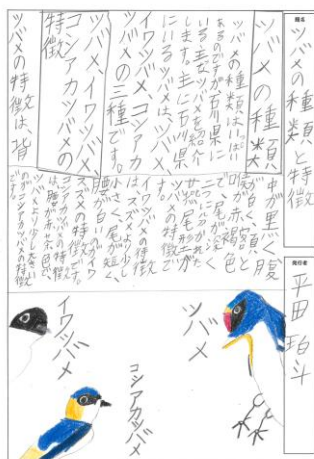 題名
ツバメの種類と特徴
発行者
平田 珀斗
ツバメの種類
ツバメの種類はいっぱい
あるのですが石川県に
いる主なツバメを紹介
します。主に石川県
にいるツバメは、ツバメ、
イワツバメ、コシアカ
ツバメの三種です。
ツバメ、イワツバメ、
コシアカツバメの
特徴
ツバメの特徴は、背
中が黒く腹
が白く、額と
喉が赤褐色
で、尾が深く
二つに分かれた
尾形が
ツバメの特徴で
す。
イワツバメの特徴
はスズメより少し
小さく、尾が短く、
腰が白いのがイワ
スズメの特徴です。
コシアカツバメの特徴
は、腰が赤茶色で、
ツバメより少し大きい
のがコシアカツバメの特徴
です。
ツバメ
コシアカツバメ
イワツバメ